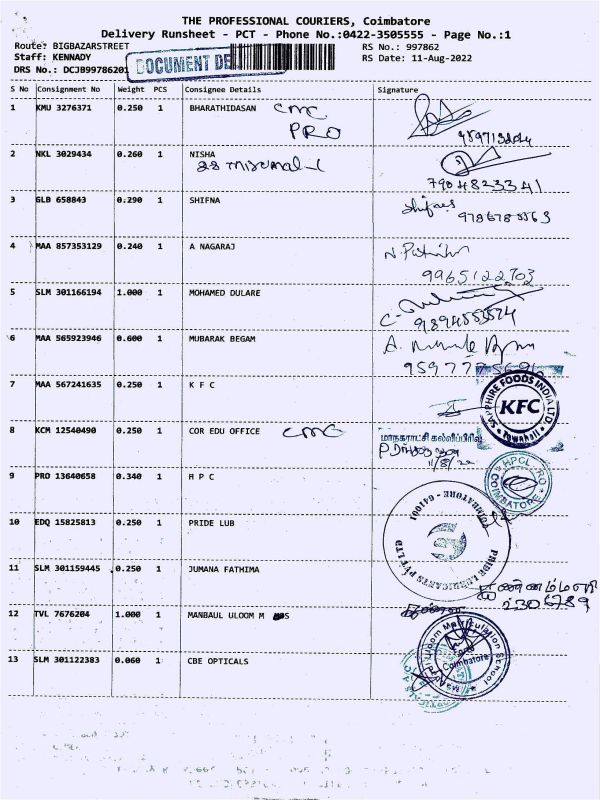 THE PROFESSIONAL COURIERS, Coimbatore
Delivery Runsheet - PCT - Phone No.:0422-3505555 - Page No.:1
Route: BIGBAZARSTREET RS No.: 997862
Staff: KENNADY RS Date: 11-Aug-2022
DRS No.: DCJB99786201
DOCUMENT DE
S No Consignment No Weight PCS Consignee Details Signature
1 KMU 3276371 0.250 1 BHARATHIDASAN CMC
PRO
2 NKL 3029434 0.260 1 NISHA
7904823341
3 GLB 658843 0.290 1 SHIFNA
4 MAA 857353129 0.240 1 A NAGARAJ
9965122703
5 SLM 301166194 1.000 1 MOHAMED DULARE
6 MAA 565923946 0.600 1 MUBARAK BEGAM
7 MAA 567241635 0.250 1 K F C
SAPPHIRE FOODS INDIA LTD.
KFC
Townhall
8 KCM 12540490 0.250 1 COR EDU OFFICE CMC
மாநகராட்சி கல்விப்பிரிவு
11/8/22
9 PRO 13640658 0.340 1 H P C
HPCL-RO
COIMBATORE
10 EDQ 15825813 0.250 1 PRIDE LUB
PRIDE LUBRICANTS PVT LTD
COIMBATORE - 641001
11 SLM 301159445 0.250 1 JUMANA FATHIMA
2306789
12 TVL 7676204 1.000 1 MANBAUL ULOOM M S
Uloom Matriculation School
Coimbatore
13 SLM 301122383 0.060 1 CBE OPTICALS